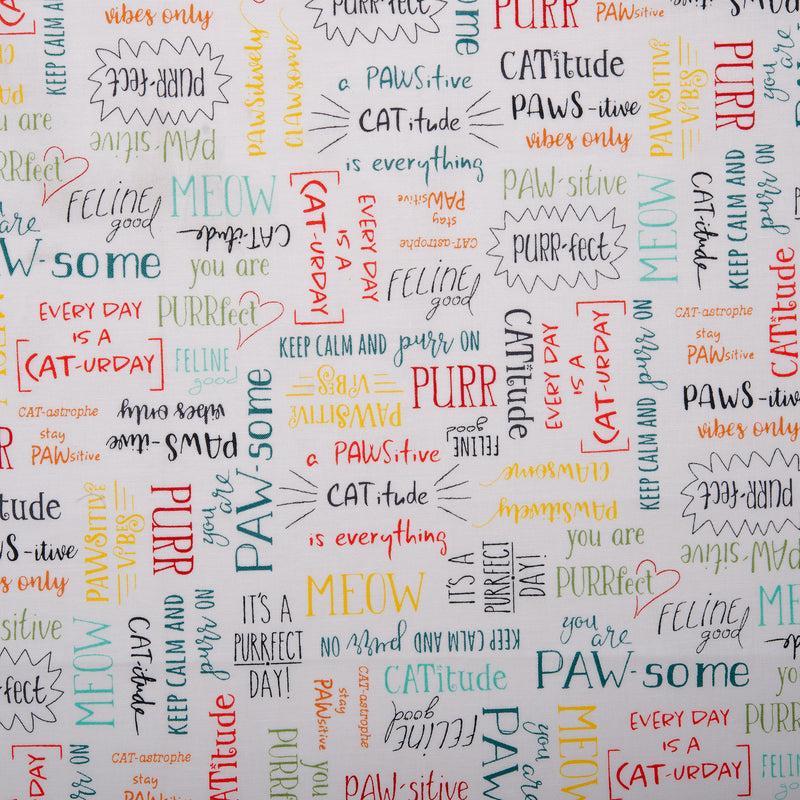 vibes only
KEEP CALM AND
PAWSitively
CLAWsome
PURR-fect
PURR
PAWsitive
PURR-fect
a PAWSitive
CATitude
is everything
CATitude
PAWS-itive
vibes only
PAWSITIVE
VIBES
PURR
you are
PAW-sitive
PURRfect
FELINE
good
MEOW
CAT-itude
you are
PAW-some
EVERY DAY
IS A
CAT-URDAY
stay
PAWsitive
CAT-astrophe
FELINE
good
PAW-sitive
PURR-fect
MEOW
CAT-itude
KEEP CALM AND
purr ON
EVERY DAY
IS A
CAT-URDAY
PURRfect
FELINE
good
KEEP CALM AND purr ON
CATitude
EVERY DAY
IS A
CAT-URDAY
KEEP CALM AND
purr ON
CAT-astrophe
stay
PAWsitive
CATitude
CAT-astrophe
stay
PAWsitive
PAWS-itive
vibes only
you are
PAW-some
PAWSITIVE
VIBES
PURR
FELINE
good
PAWS-itive
vibes only
a PAWSitive
CATitude
is everything
PAWSitively
CLAWsome
PURR-fect
PAW-sitive
titude
S-itive
s only
PAWSITIVE
VIBES
PURR
you are
PURRfect
IT'S A
PURRFECT
DAY!
MEOW
FELINE
good
sitive
-fect
MEOW
CAT-itude
KEEP CALM AND
purr ON
IT'S A
PURRFECT
DAY!
KEEP CALM AND purr ON
you
are
PAW-some
CATitude
CATitude
stay
PAWsitive
CAT-astrophe
FELINE
good
you are
PAW
MEOW
EVERY DAY
IS A
CAT-URDAY
PURR
FELINE
URDAY
purr ON
CAT-astrophe
stay
PAWsitive
you
PURRf
PAW-sitive